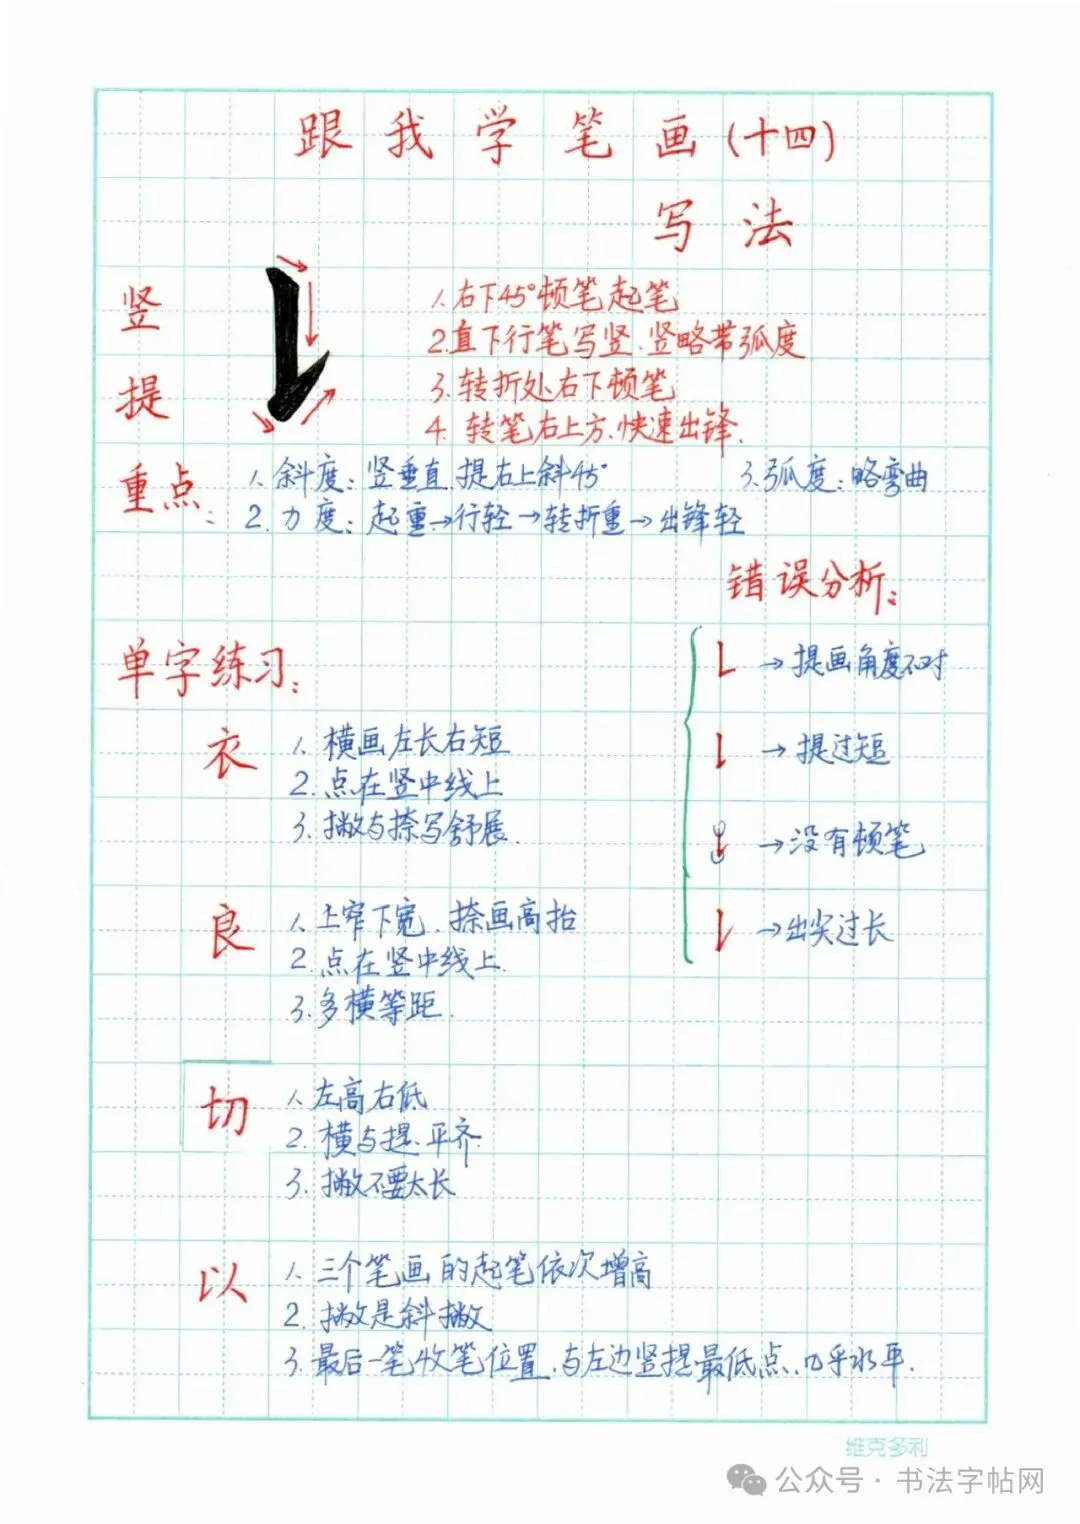 跟我学笔画(十四)
写法
竖提
1.右下45°顿笔起笔
2.直下行笔写竖.竖略带弧度
3.转折处右下顿笔
4.转笔右上方.快速出锋.
重点:
1.斜度:竖垂直.提右上斜45°
3.弧度:略弯曲
2.力度:起重→行轻→转折重→出锋轻
错误分析:
→提画角度不对
→提过短
→没有顿笔
→出尖过长
单字练习:
衣
1.横画左长右短
2.点在竖中线上
3.撇与捺写舒展.
良
1.上窄下宽.捺画高抬
2.点在竖中线上.
3.多横等距.
切
1.左高右低
2.横与提.平齐.
3.撇不要太长
以
1.三个笔画的起笔依次增高
2.撇是斜撇
3.最后一笔收笔位置.与左边竖提最低点.几乎水平.
维克多利
公众号·书法字帖网